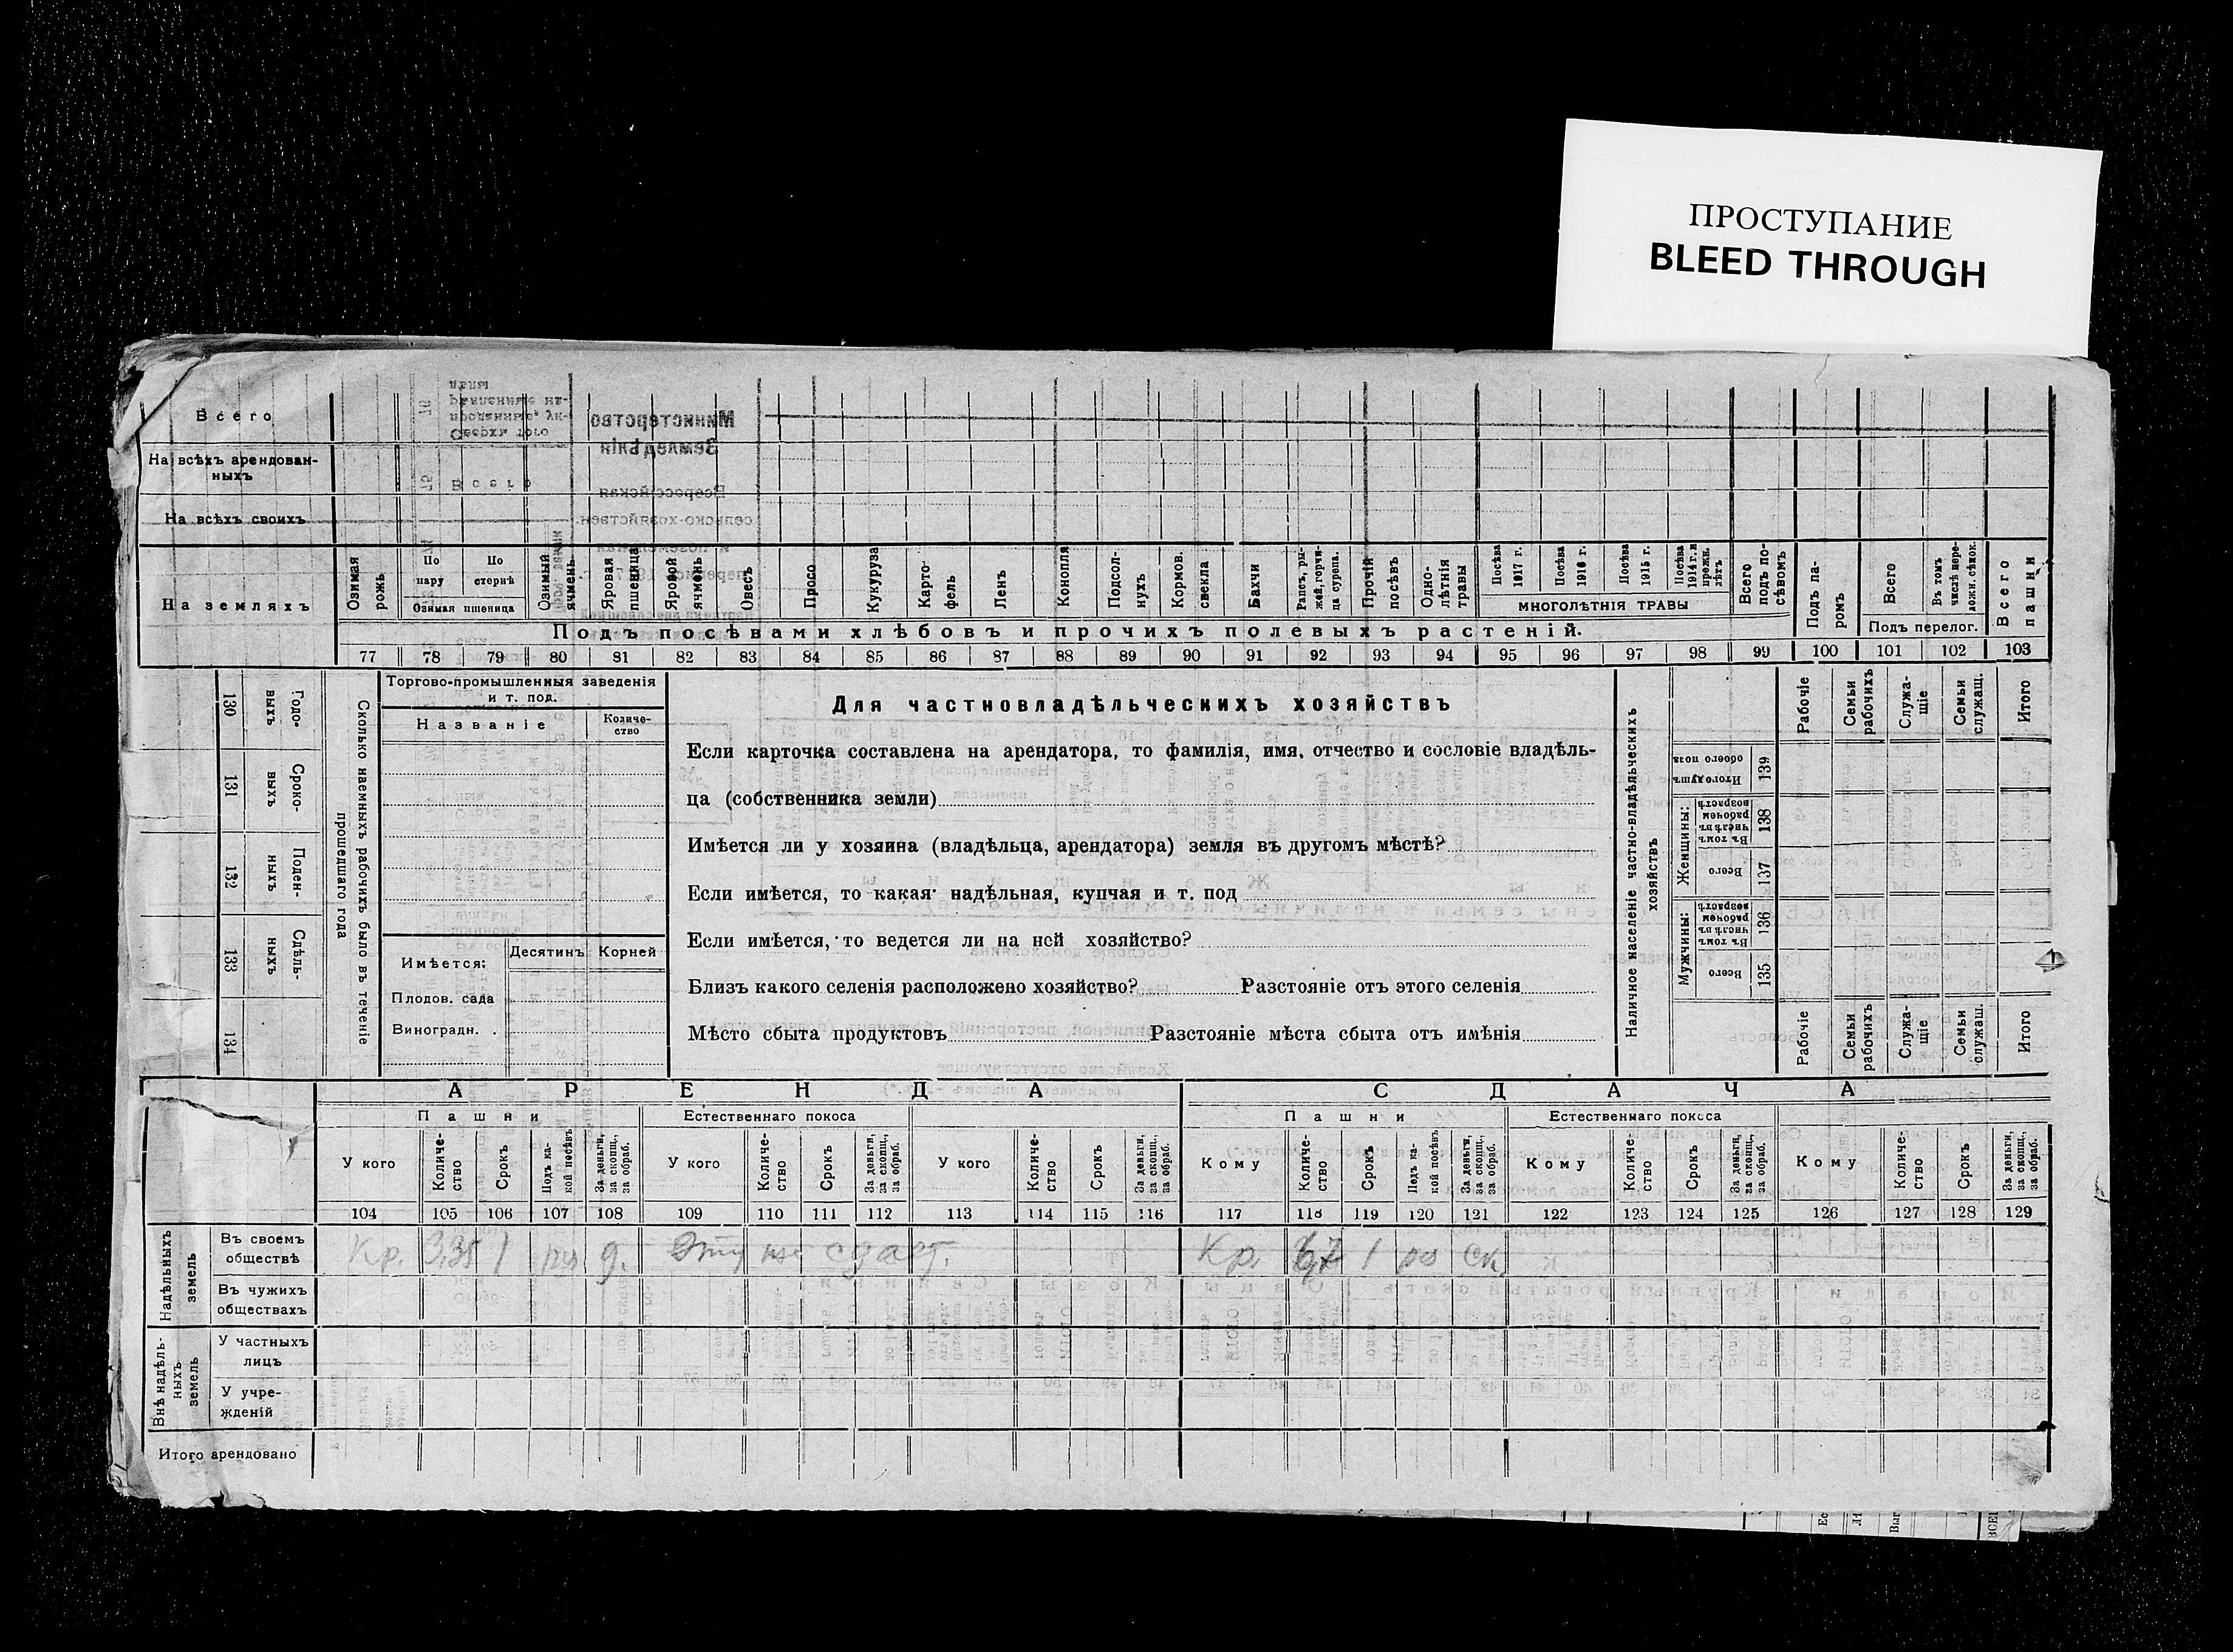 ПРОСТУПАНИЕ
BLEED THROUGH
Всего
На всѣхъ арендован-
ныхъ
На всѣхъ своихъ
На земляхъ
Озимая рожь
По пару
По стернѣ
Озимая пшеница
Озимый ячмень
Яровая пшеница
Яровой ячмень
Овесъ
Просо
Кукуруза
Карто-
фель
Ленъ
Конопля
Подсол-
нухъ
Кормов.
свекла
Бахчи
Рапсъ, ры-
жей, горчи-
ца сурепа.
Прочій
посѣвъ
Одно-
лѣтнія
травы
Посѣва
1917 г.
Посѣва
1916 г.
Посѣва
1915 г.
Посѣва
1914 г. и
прежн.
лѣтъ
МНОГОЛѢТНІЯ ТРАВЫ
Всего
подъ по-
сѣвомъ
Подъ па-
ромъ
Всего
Въ томъ
числѣ пере-
ложн. сѣнок.
Подъ перелог.
Всего
пашни
Подъ посѣвами хлѣбовъ и прочихъ полевыхъ растеній.
77 78 79 80 81 82 83 84 85 86 87 88 89 90 91 92 93 94 95 96 97 98 99 100 101 102 103
130 Годо-
выхъ
131 Сроко-
выхъ
132 Поден-
ныхъ
133 Сдѣль-
ныхъ
134
Сколько наемныхъ рабочихъ было въ теченіе
прошедшаго года
Торгово-промышленныя заведенія
и т. под.
Названіе
Количе-
ство
Имѣется:
Десятинъ
Корней
Плодов. сада
Виноградн. .
Для частновладѣльческихъ хозяйствъ
Если карточка составлена на арендатора, то фамилія, имя, отчество и сословіе владѣль-
ца (собственника земли)
Имѣется ли у хозяина (владѣльца, арендатора) земля въ другомъ мѣстѣ?
Если имѣется, то какая: надѣльная, купчая и т. под
Если имѣется, то ведется ли на ней хозяйство?
Близъ какого селенія расположено хозяйство? Разстояніе отъ этого селенія
Мѣсто сбыта продуктовъ Разстояніе мѣста сбыта отъ имѣнія
Наличное населеніе частно-владѣльческихъ
хозяйствъ
Рабочіе
Семьи
рабочихъ
Служа-
щіе
Семьи
служащ.
Итого
Итого душъ
обоего пола
139
Женщины:
Въ томъ
числѣ въ
рабочемъ
возрастѣ
138
Всего
137
Мужчины:
Въ томъ
числѣ въ
рабочемъ
возрастѣ
136
Всего
135
Рабочіе
Семьи
рабочихъ
Служа-
щіе
Семьи
служащ.
Итого
АРЕНДА
СДАЧА
Пашни
Естественнаго покоса
Пашни
Естественнаго покоса
У кого
Количе-
ство
Срокъ
Подъ ка-
кой посѣвъ
За деньги,
за скопщ.,
за обраб.
У кого
Количе-
ство
Срокъ
За деньги,
за скопщ.,
за обраб.
У кого
Количе-
ство
Срокъ
За деньги,
за скопщ.,
за обраб.
Кому
Количе-
ство
Срокъ
Подъ ка-
кой посѣвъ
За деньги,
за скопщ.,
за обраб.
Кому
Количе-
ство
Срокъ
За деньги,
за скопщ.,
за обраб.
Кому
Количе-
ство
Срокъ
За деньги,
за скопщ.,
за обраб.
104 105 106 107 108 109 110 111 112 113 114 115 116 117 118 119 120 121 122 123 124 125 126 127 128 129
Надѣльныхъ
земель
Въ своемъ
обществѣ
Кр. 3,35 1 д. Эту же сдает. Кр. 6,7 1 ск.
Въ чужихъ
обществахъ
Внѣ надѣль-
ныхъ
земель
У частныхъ
лицъ
У учре-
жденій
Итого арендовано